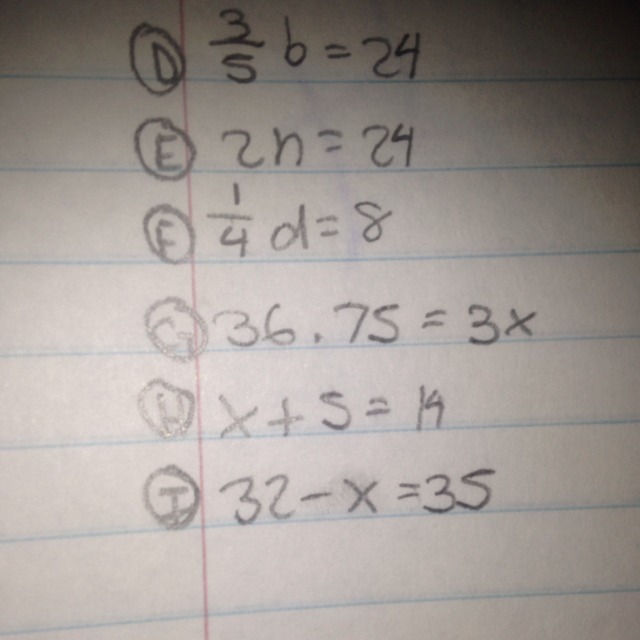 D 3/5 b = 24
E 2n = 24
F 1/4 d = 8
G 36.75 = 3x
H x + 5 = 14
I 32 - x = 35